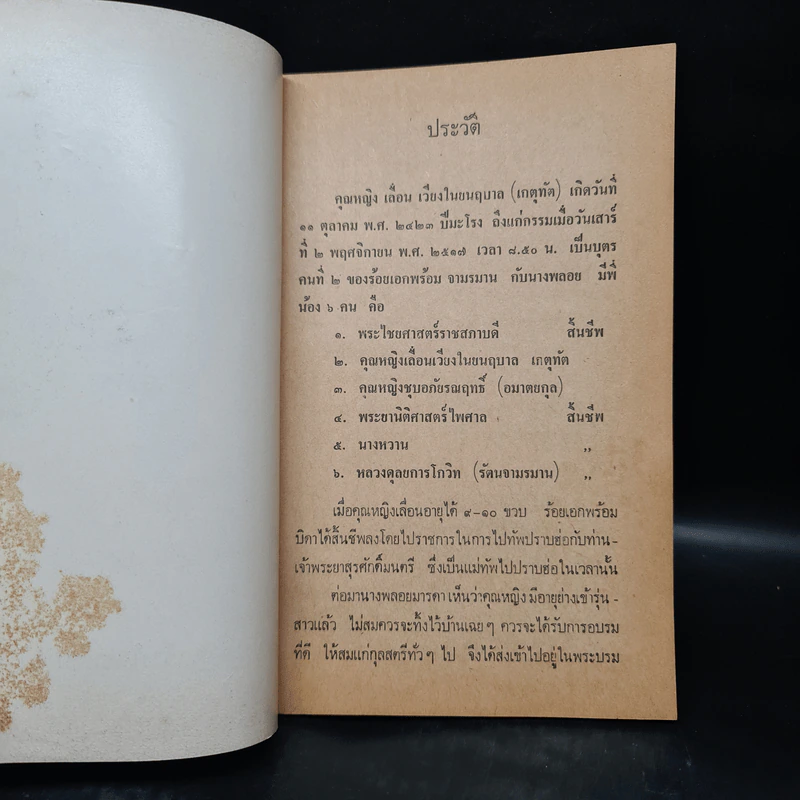 ประวัติ
คุณหญิง เลื่อน เวียงในขนฤบาล (เกตุทัต) เกิดวันที่
๑๑ ตุลาคม พ.ศ. ๒๔๒๓ ปีมะโรง ถึงแก่กรรมเมื่อวันเสาร์
ที่ ๒ พฤศจิกายน พ.ศ. ๒๕๑๗ เวลา ๘.๕๐ น. เป็นบุตร
คนที่ ๒ ของร้อยเอกพร้อม จามรมาน กับนางพลอย มีพี่
น้อง ๖ คน คือ
๑. พระไชยศาสตร์ราชสภาบดี สิ้นชีพ
๒. คุณหญิงเลื่อนเวียงในขนฤบาล เกตุทัต
๓. คุณหญิงชุบอภัยรณฤทธิ์ (อมาตยกุล)
๔. พระยานิติศาสตร์ไพศาล สิ้นชีพ
๕. นางหวาน ,,
๖. หลวงดุลยการโกวิท (รัตนจามรมาน) ,,
เมื่อคุณหญิงเลื่อนอายุได้ ๙-๑๐ ขวบ ร้อยเอกพร้อม
บิดาได้สิ้นชีพลงโดยไปราชการในการไปทัพปราบฮ่อกับท่าน-
เจ้าพระยาสุรศักดิ์มนตรี ซึ่งเป็นแม่ทัพไปปราบฮ่อในเวลานั้น
ต่อมานางพลอยมารดา เห็นว่าคุณหญิง มีอายุย่างเข้ารุ่น-
สาวแล้ว ไม่สมควรจะทิ้งไว้บ้านเฉย ๆ ควรจะได้รับการอบรม
ที่ดี ให้สมแก่กุลสตรีทั่ว ๆ ไป จึงได้ส่งเข้าไปอยู่ในพระบรม